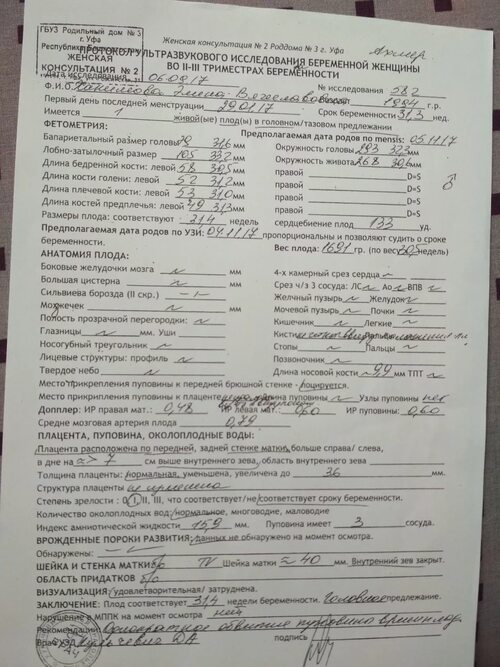 ГБУЗ Родильный дом № 3
г. Уфа
Республики
ЖЕНСКАЯ
КОНСУЛЬТАЦИЯ № 2
Женская консультация № 2 Роддома № 3 г. Уфа
ПРОТОКОЛ УЛЬТРАЗВУКОВОГО ИССЛЕДОВАНИЯ БЕРЕМЕННОЙ ЖЕНЩИНЫ
ВО II-III ТРИМЕСТРАХ БЕРЕМЕННОСТИ
Дата исследования 06.09.17 № исследования 582
Ф.И.О. 1984 г.р.
Первый день последней менструации 29.01.17 Срок беременности 31,3 нед.
Имеется 1 живой(ые) плод(ы) в головном/тазовом предлежании
ФЕТОМЕТРИЯ: Предполагаемая дата родов по mensis: 05.11.17
Бапариентальный размер головы 79 31,6 Окружность головы 293 32,3 мм
Лобно-затылочный размер 105 33,2 мм Окружность живота 268 30,6 мм
Длина бедренной кости: левой 58 30,5 правой D=S
Длина кости голени: левой 52 31,2 правой D=S
Длина плечевой кости: левой 53 31,0 правой D=S
Длина костей предплечья: левой 49 31,3 мм правой D=S
Размеры плода: соответствуют 31,4 недель сердцебиение плод 133 уд.
Предполагаемая дата родов по УЗИ: 04.11.17 пропорциональны и позволяют судить о сроке
беременности. Вес плода: 1691 гр. (по весу 30,5 недель)
АНАТОМИЯ ПЛОДА:
Боковые желудочки мозга ~ мм 4-х камерный срез сердца ~
Большая цистерна ~ мм Срез ч/з 3 сосуда: ЛС ~ Ао ~ ВПВ ~
Сильвиева борозда (II скр.) Желчный пузырь ~ Желудок ~
Мозжечек ~ мм Мочевой пузырь ~ Почки ~
Полость прозрачной перегородки: ~ Кишечник ~ Легкие ~
Глазницы ~ мм. Уши Кисти
Носогубный треугольник ~ Стопы ~ Пальцы ~
Лицевые структуры: профиль ~ Позвоночник ~
Твердое небо ~ Длина носовой кости ~ 9,9 мм ТПТ ~
Место прикрепления пуповины к передней брюшной стенке - лоцируется.
Место прикрепления пуповины к плаценте пуповины ~ Узлы пуповины нет
Допплер: ИР правая мат.: 0,48 ИР левая мат.: 0,60 ИР пуповины: 0,60
Средне мозговая артерия плода 0,79
ПЛАЦЕНТА, ПУПОВИНА, ОКОЛОПЛОДНЫЕ ВОДЫ:
Плацента расположена по передней, задней стенке матки, больше справа/ слева,
в дне на > 7 см выше внутреннего зева, область внутреннего зева
Толщина плаценты: нормальная, уменьшена, увеличена до 36 мм.
Структура плаценты
Степень зрелости : 0, I, II, III, что соответствует/не соответствует сроку беременности.
Количество околоплодных вод: нормальное, многоводие, маловодие
Индекс амниотической жидкости 15,9 мм. Пуповина имеет 3 сосуда.
ВРОЖДЕННЫЕ ПОРОКИ РАЗВИТИЯ: данных не обнаружено на момент осмотра.
Обнаружены:
ШЕЙКА И СТЕНКА МАТКИ: б/о TV Шейка матки ≈ 40 мм. Внутренний зев закрыт.
ОБЛАСТЬ ПРИДАТКОВ б/о
ВИЗУАЛИЗАЦИЯ: удовлетворительная/ затруднена.
ЗАКЛЮЧЕНИЕ: Плод соответствует 31,4 недели беременности. Головное предлежание.
Нарушение в МППК на момент осмотра нет
Рекомендации: Однократное обвитие пуповины
Врач УЗД подпись